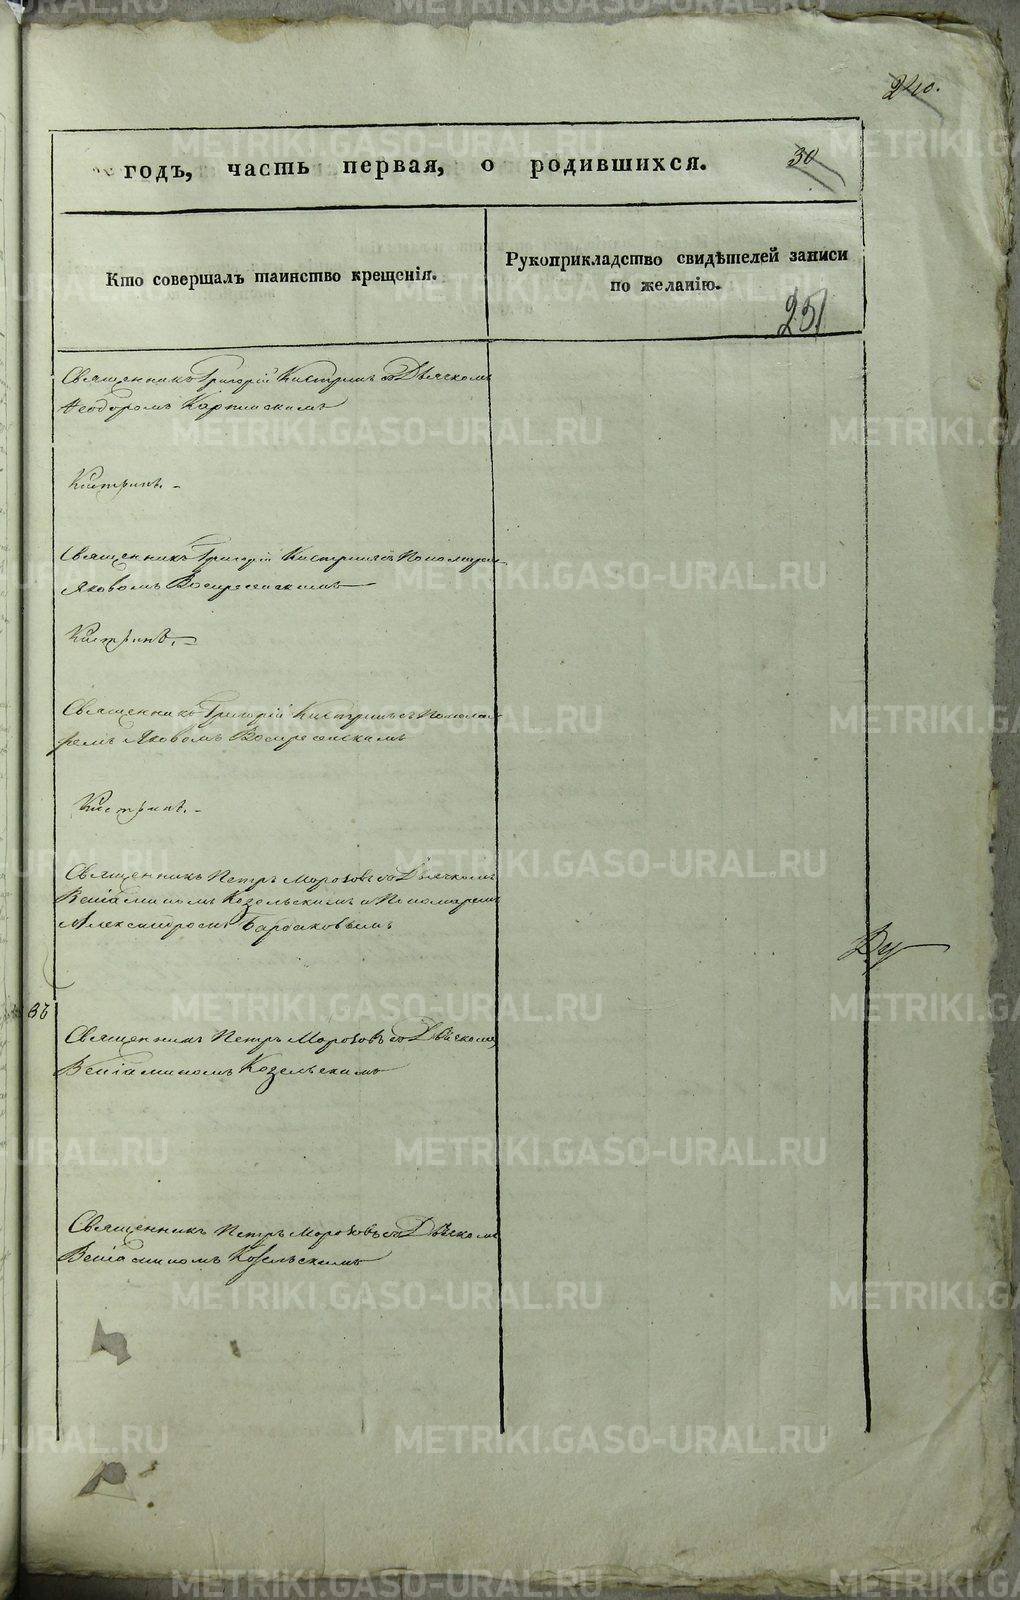 240.
годъ, часть первая, о родившихся.
30
Кто совершалъ таинство крещенія.
Рукоприкладство свидѣтелей записи
по желанію.
251
Священникъ Григорій Кистринъ со Дьячкомъ
Ѳеодоромъ Карпинскимъ
Кистринъ.
Священникъ Григорій Кистринъ съ Пономарем
Яковомъ Воскресенскимъ
Кистринъ.
Священникъ Григорій Кистринъ съ Понома-
ремъ Яковомъ Воскресенскимъ
Кистринъ.
Священникъ Петръ Морозовъ со Дьячкомъ
Веніаминомъ Козельскимъ и Пономаремъ
Александромъ
Священникъ Петръ Морозовъ со Дьячкомъ
Веніаминомъ Козельскимъ
Священникъ Петръ Морозовъ со Дьячкомъ
Веніаминомъ Козельскимъ
METRIKI.GASO-URAL.RU